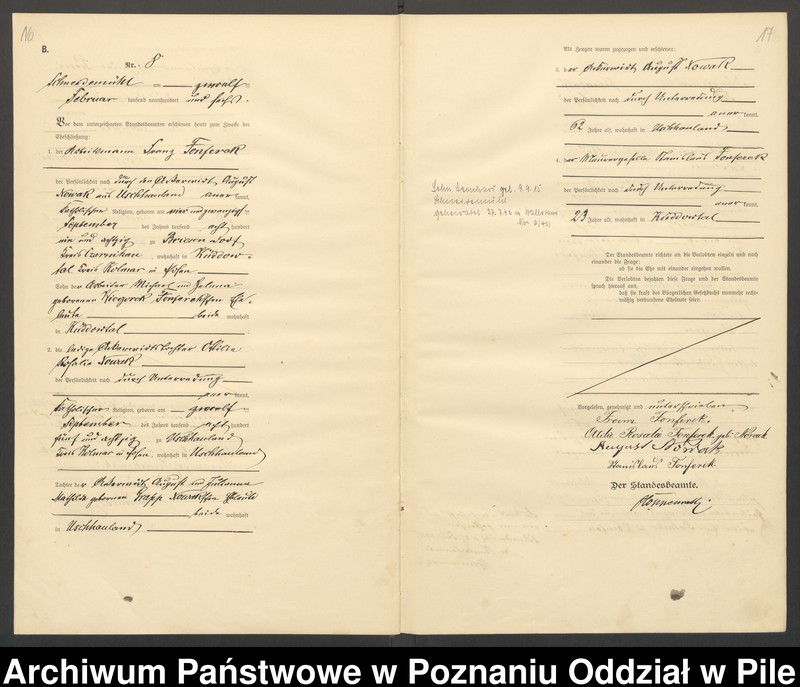 16
B.
Nr. 8
Schneidemühl am zwoelf
Februar tausend neunhundert und sechs.
Vor dem unterzeichneten Standesbeamten erschienen heute zum Zwecke der
Eheschließung:
1. der Arbeitsmann Franz Fonferek
der Persönlichkeit nach durch den Ackerwirt August
Nowak aus Uschhauland anerkannt,
katholischer Religion, geboren am vier und zwanzigsten
September des Jahres tausend acht hundert
ein und achtzig zu Briesen Dorf
Kreis Czarnikau, wohnhaft in Küddow-
tal Kreis Kolmar in Posen
Sohn der Arbeiter Michael und Helena
geborenen Fonferekschen Ehe-
leute beide wohnhaft
in Küddowtal
2. die ledige Ackerwirtstochter Ottilie
Rosalie Nowak
der Persönlichkeit nach durch Unterredung
anerkannt,
katholischer Religion, geboren am zwoelf
September des Jahres tausend acht hundert
fünf und achtzig zu Uschhauland
Kreis Kolmar in Posen, wohnhaft in Uschhauland
Tochter der Ackerwirt August und Julianna
Mathilde geborenen Nowakschen Eheleute
beide wohnhaft
in Uschhauland
17
Als Zeugen waren zugezogen und erschienen:
3. der Ackerwirt August Nowak
der Persönlichkeit nach durch Unterredung
anerkannt,
62 Jahre alt, wohnhaft in Uschhauland
4. der Maurergeselle Stanislaus Fonferek
der Persönlichkeit nach durch Unterredung
anerkannt,
23 Jahre alt, wohnhaft in Küddowtal
Sohn Leonhard geb. 9.9.15
Schneidemühl
geheiratet 27.7.40 in
Nr
Der Standesbeamte richtete an die Verlobten einzeln und nach
einander die Frage:
ob sie die Ehe mit einander eingehen wollen.
Die Verlobten bejahten diese Frage und der Standesbeamte
sprach hierauf aus,
daß sie kraft des Bürgerlichen Gesetzbuchs nunmehr recht-
mäßig verbundene Eheleute seien.
Vorgelesen, genehmigt und unterschrieben
Franz Fonferek.
Ottilie Rosalie Fonferek geb. Nowak
August Nowak
Stanislaus Fonferek
Der Standesbeamte.
Archiwum Państwowe w Poznaniu Oddział w Pile